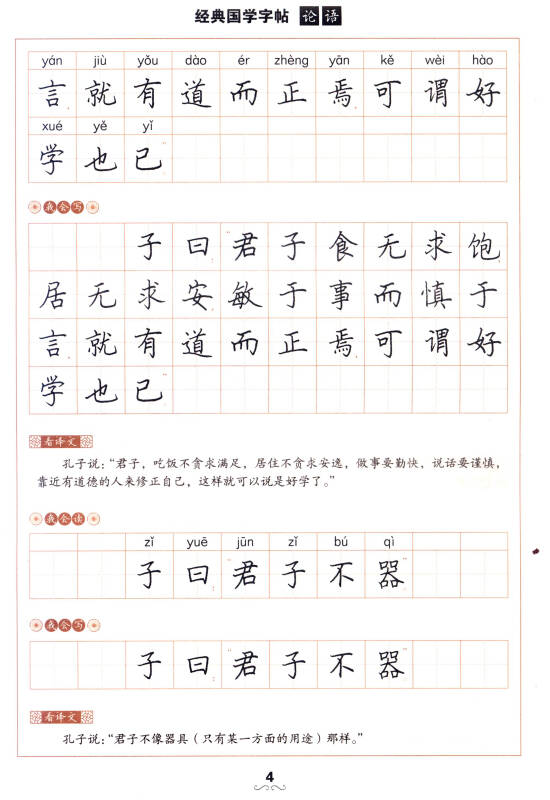 经典国学字帖 论语
yán jiù yǒu dào ér zhèng yān kě wèi hào
言就有道而正焉可谓好
xué yě yǐ
学也已
我会写
子曰:“君子食无求饱,
居无求安,敏于事而慎于
言,就有道而正焉,可谓好
学也已。”
看译文
孔子说:“君子,吃饭不贪求满足,居住不贪求安逸,做事要勤快,说话要谨慎,
靠近有道德的人来修正自己,这样就可以说是好学了。”
我会读
zǐ yuē jūn zǐ bú qì
子曰:“君子不器。”
我会写
子曰:“君子不器。”
看译文
孔子说:“君子不像器具(只有某一方面的用途)那样。”
4